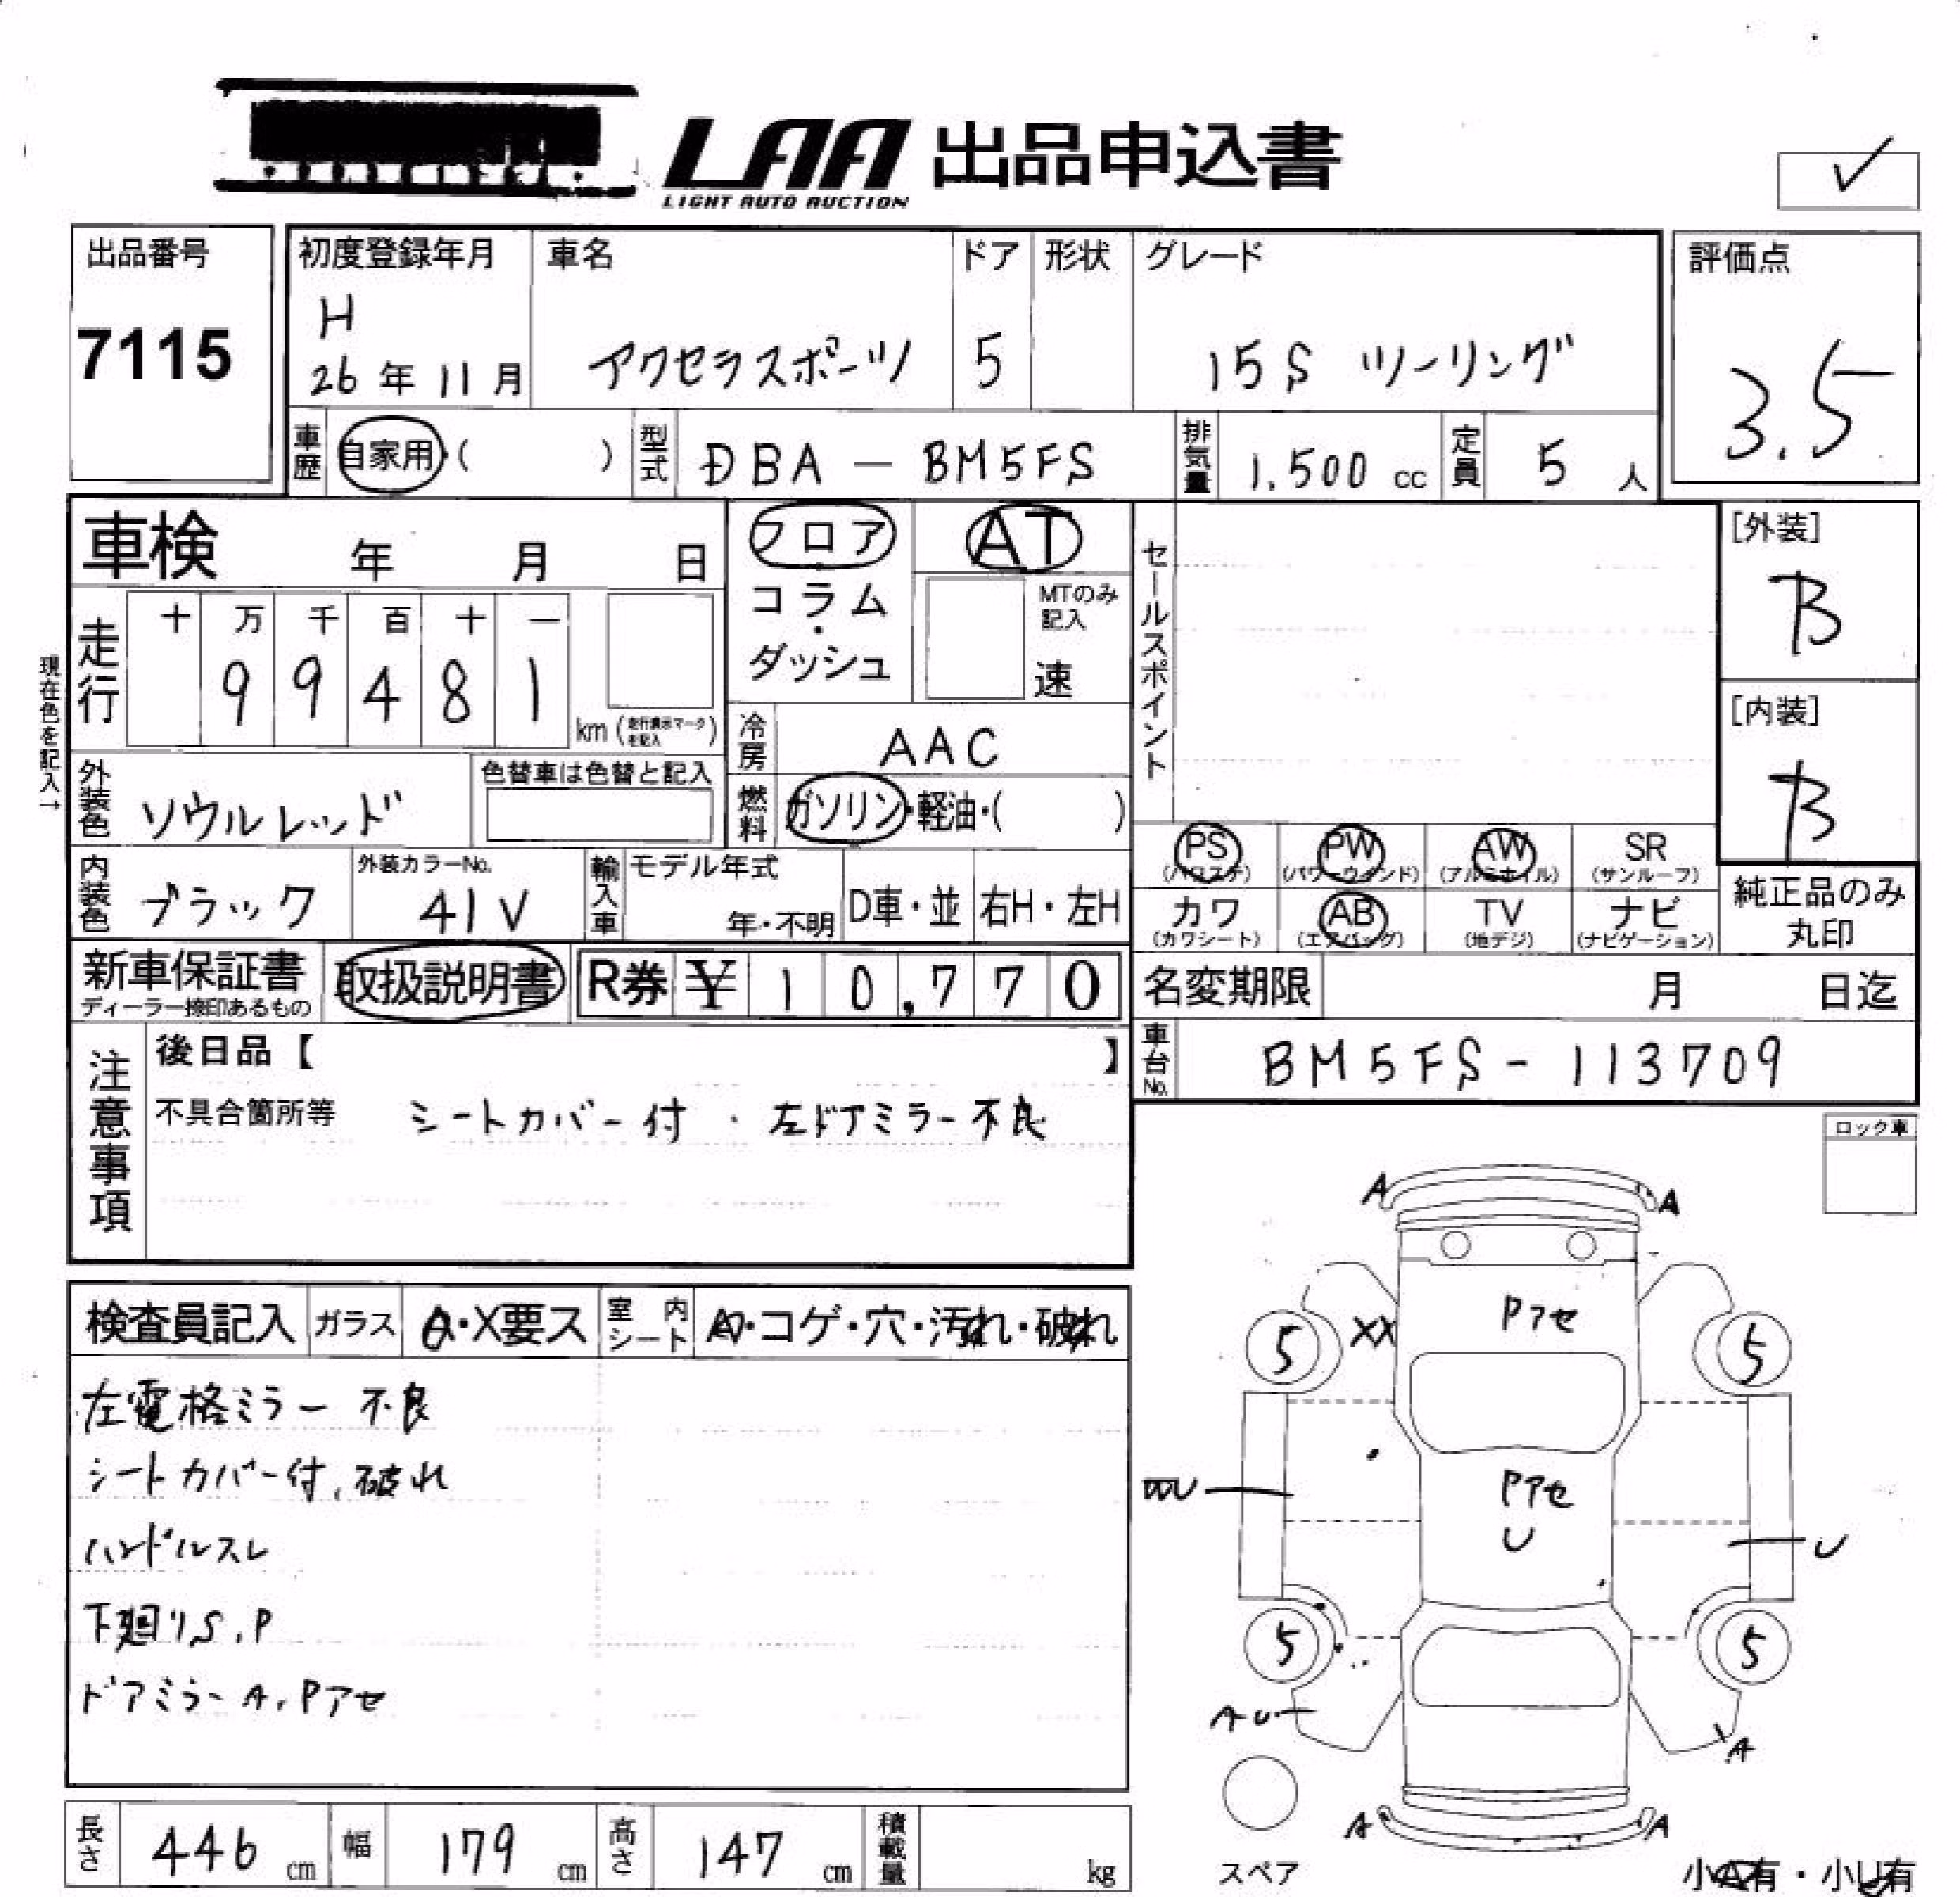 LAA 出品申込書
LIGHT AUTO AUCTION
✓
出品番号
7115
初度登録年月
H
26年11月
車名
アクセラスポーツ
ドア
5
形状
グレード
15S ツーリング
評価点
3.5
車歴 自家用・( )
型式 DBA - BM5FS
排気量 1.500 cc
定員 5 人
車検 年 月 日
フロア
コラム
・
ダッシュ
AT
MTのみ
記入
速
セールスポイント
[外装]
B
[内装]
B
現在色を記入→
走行
十 万 千 百 十 一
9 9 4 8 1
km (走行表示マークを記入)
冷房 AAC
燃料 ガソリン・軽油・( )
外装色 ソウルレッド
色替車は色替と記入
内装色 ブラック
外装カラーNo.
41V
輸入車
モデル年式
年・不明
D車・並
右H・左H
PS
(パワステ)
PW
(パワーウィンド)
AW
(アルミホイル)
SR
(サンルーフ)
カワ
(カワシート)
AB
(エアバッグ)
TV
(地デジ)
ナビ
(ナビゲーション)
純正品のみ
丸印
新車保証書
ディーラー捺印あるもの
取扱説明書
R券 ¥ 10,770
名変期限 月 日迄
車台No. BM5FS-113709
注意事項
後日品【 】
不具合箇所等 シートカバー付 . 左ドアミラー不良
ロック車
検査員記入
ガラス
A・X要ス
室内シート
・コゲ・穴・汚れ・破れ
左電格ミラー 不良
シートカバー付、破れ
ハンドルスレ
下廻りS.P
ドアミラーA.Pアセ
A A
Pアセ
5 XX 5
Pアセ
U
U
5 5
AU
A
A A
スペア
長さ 446 cm
幅 179 cm
高さ 147 cm
積載量 kg
小A有・小U有